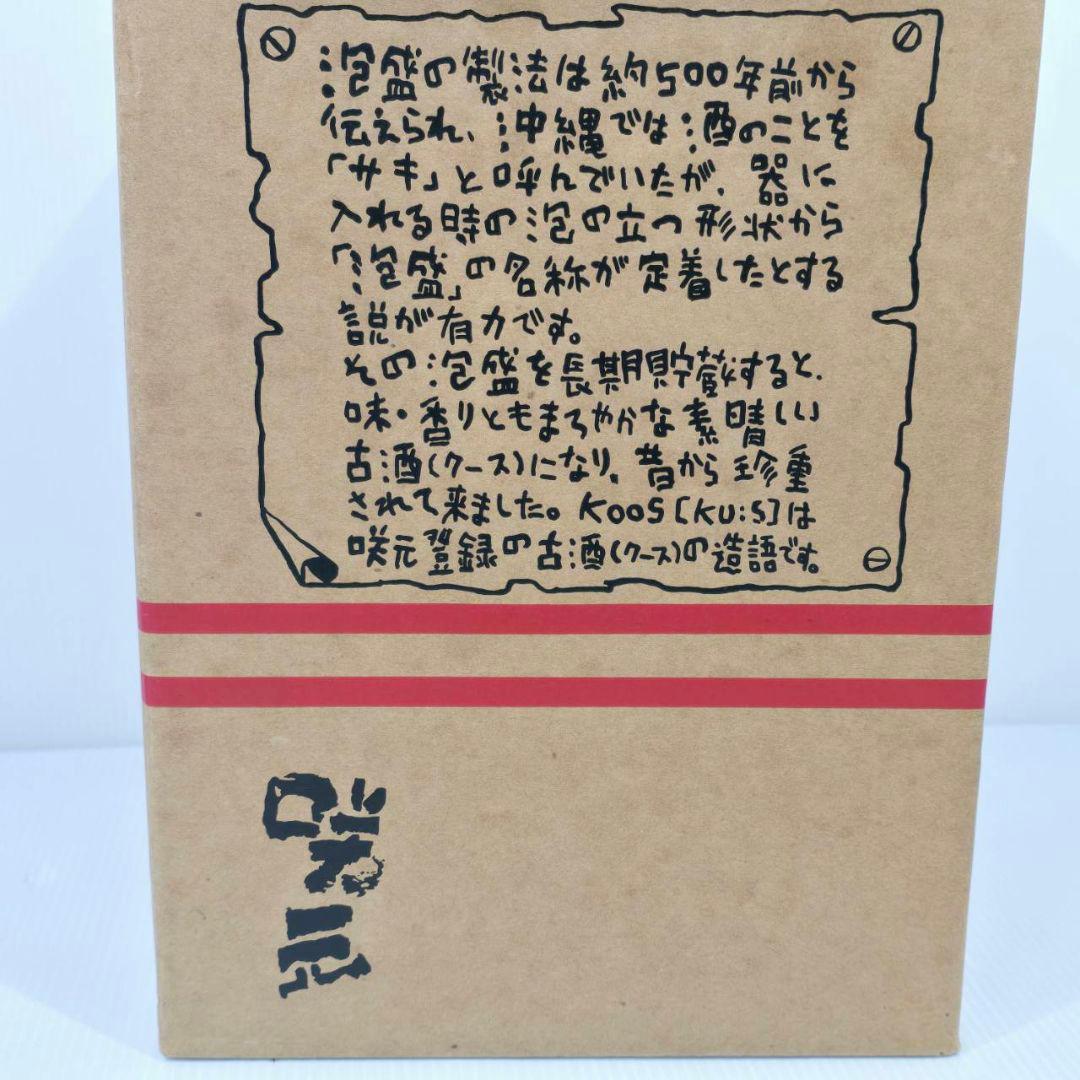 泡盛の製法は約500年前から
伝えられ、沖縄では酒のことを
「サキ」と呼んでいたが、器に
入れる時の泡の立つ形状から
「泡盛」の名称が定着したとする
説が有力です。
その泡盛を長期間貯蔵すると、
味・香りともまろやかな素晴しい
古酒(クース)になり、昔から珍重
されて来ました。KOOS[KU:S]は
咲元登録の古酒(クース)の造語です。
咲元